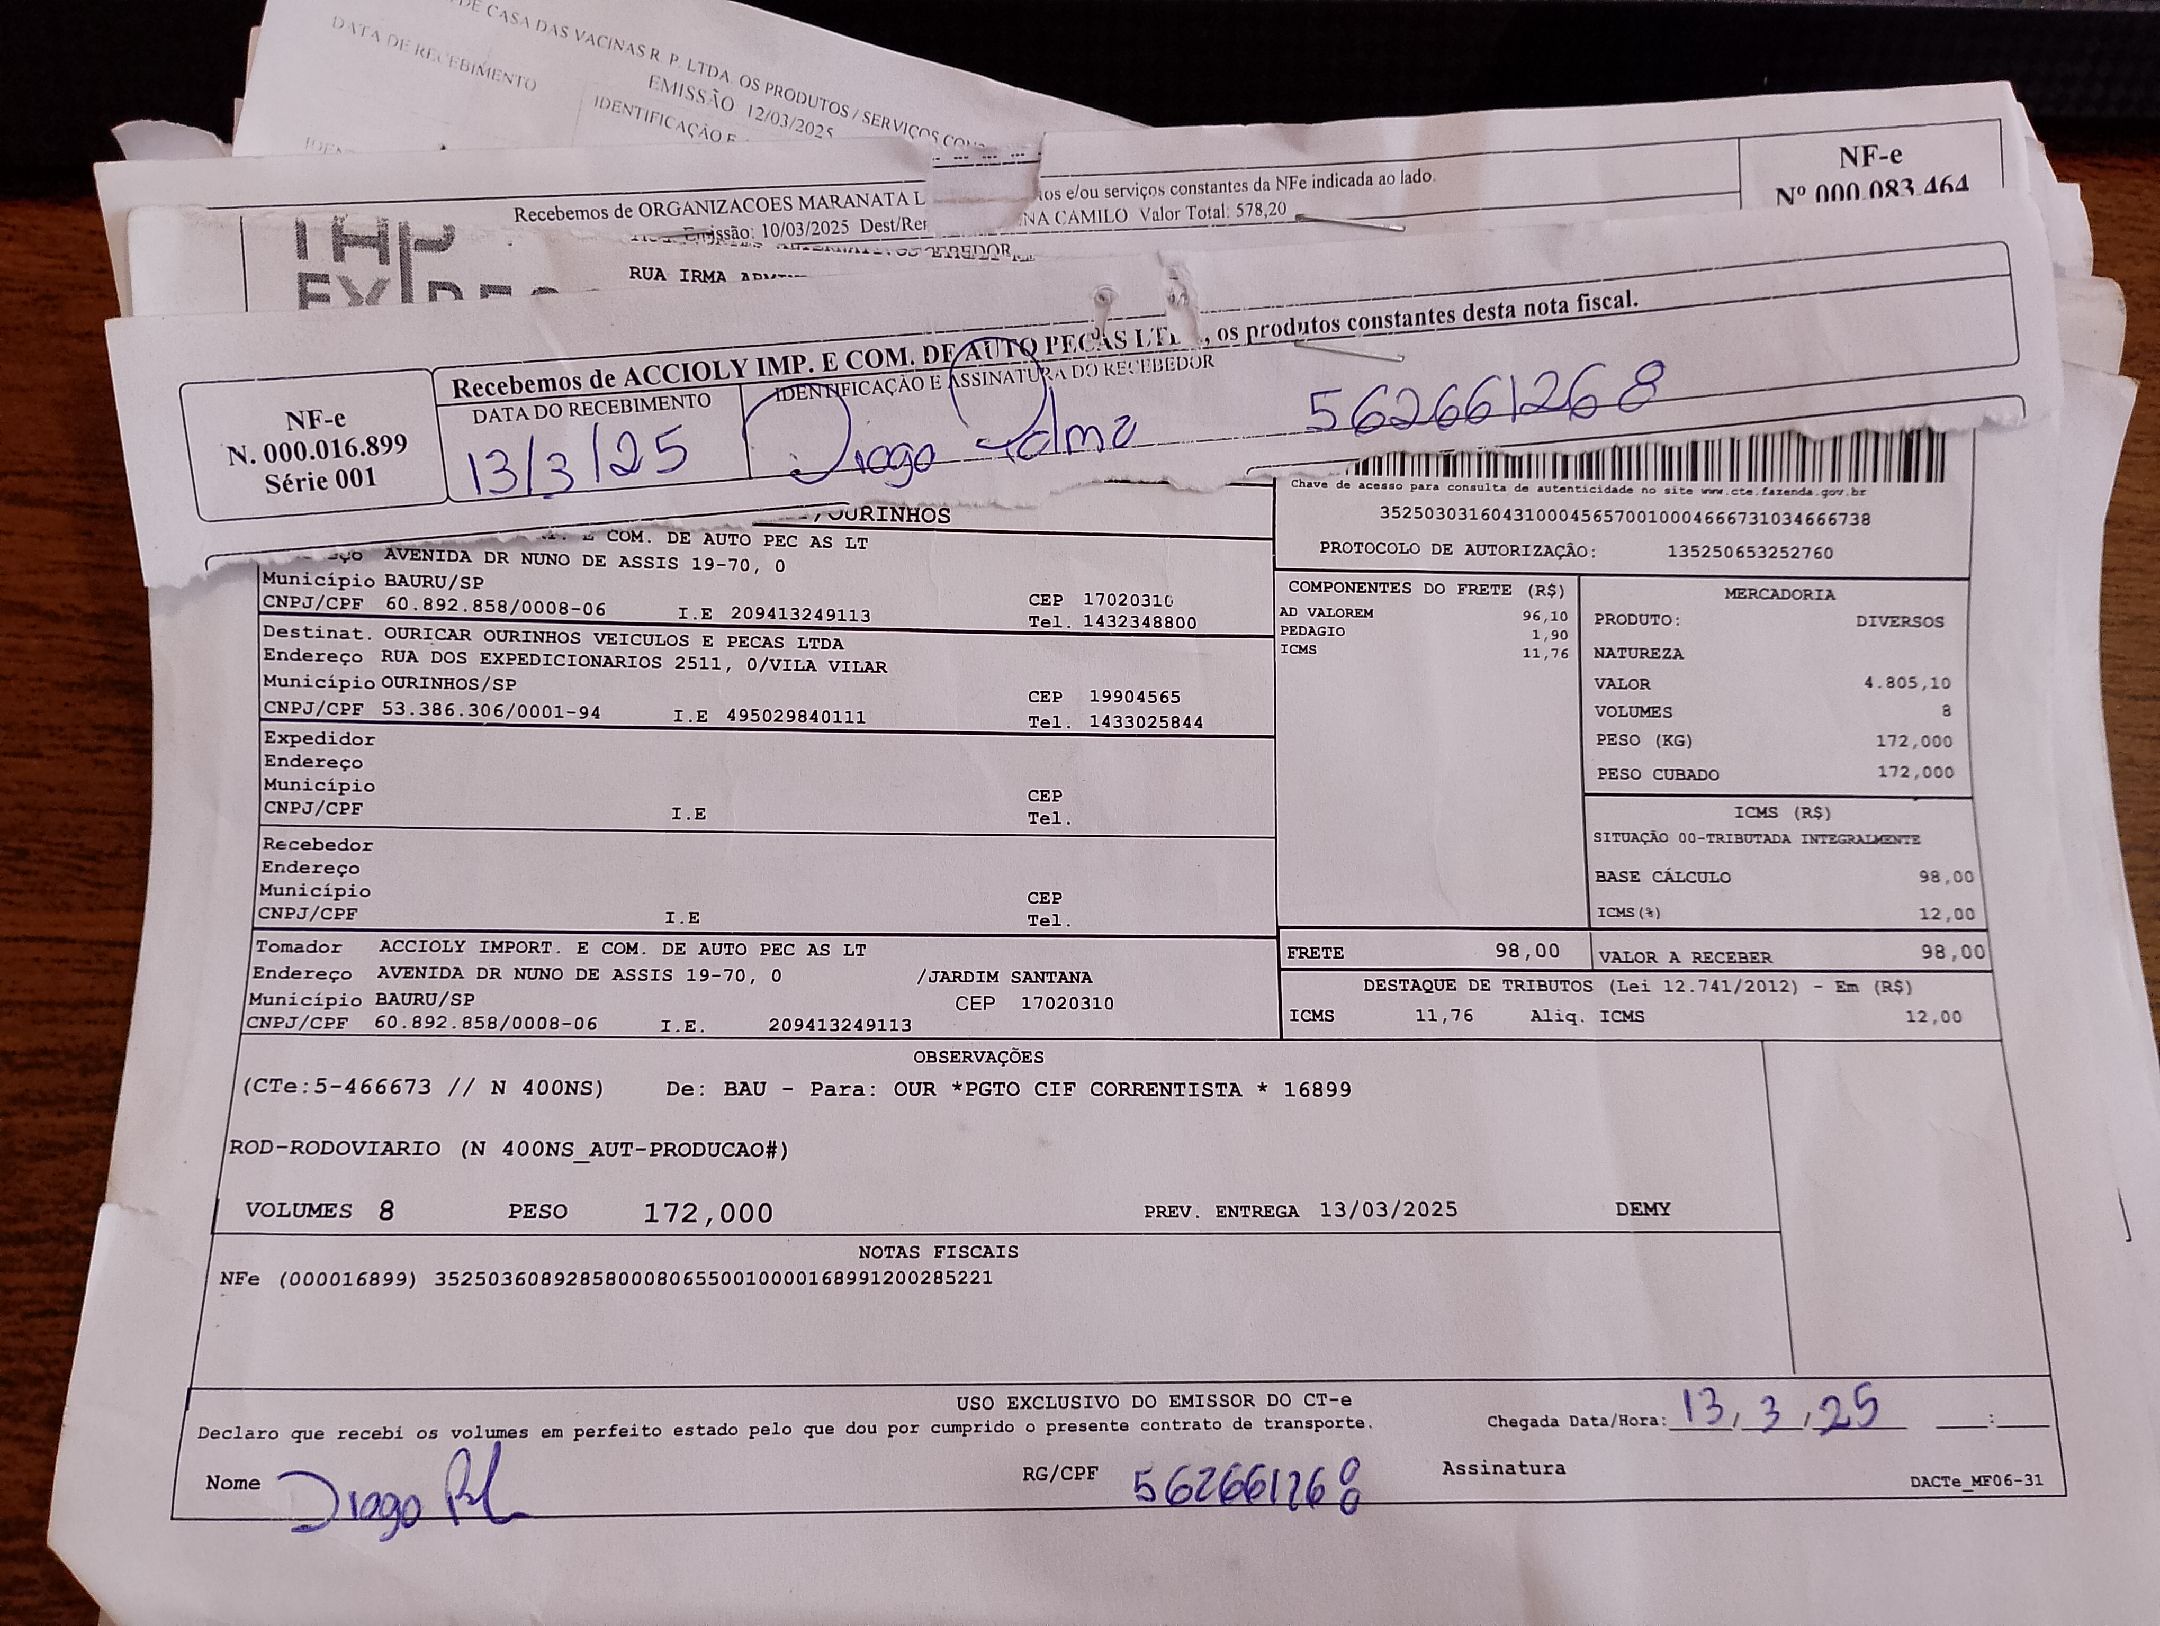 DE CASA DAS VACINAS R. P. LTDA. OS PRODUTOS / SERVIÇOS
EMISSÃO 12/03/2025
DATA DE RECEBIMENTO
IDENTIFICAÇÃO E
Recebemos de ORGANIZACOES MARANATA L
os e/ou serviços constantes da NFe indicada ao lado.
Emissão: 10/03/2025 Dest/Rem
NA CAMILO Valor Total: 578,20
NF-e
Nº 000.083.464
RUA IRMA
Recebemos de ACCIOLY IMP. E COM. DE AUTO PEÇAS LT , os produtos constantes desta nota fiscal.
NF-e
N. 000.016.899
Série 001
DATA DO RECEBIMENTO
13/3/25
IDENTIFICAÇÃO E ASSINATURA DO RECEBEDOR
Diogo 562661268
Chave de acesso para consulta de autenticidade no site www.cte.fazenda.gov.br
35250303160431000456570010004666731034666738
PROTOCOLO DE AUTORIZAÇÃO: 135250653252760
/OURINHOS
E COM. DE AUTO PEC AS LT
AVENIDA DR NUNO DE ASSIS 19-70, 0
Município BAURU/SP
CEP 17020310
CNPJ/CPF 60.892.858/0008-06 I.E 209413249113
Tel. 1432348800
Destinat. OURICAR OURINHOS VEICULOS E PECAS LTDA
Endereço RUA DOS EXPEDICIONARIOS 2511, 0/VILA VILAR
Município OURINHOS/SP
CEP 19904565
CNPJ/CPF 53.386.306/0001-94 I.E 495029840111
Tel. 1433025844
Expedidor
Endereço
Município
CEP
CNPJ/CPF I.E
Tel.
Recebedor
Endereço
Município
CEP
CNPJ/CPF I.E
Tel.
Tomador ACCIOLY IMPORT. E COM. DE AUTO PEC AS LT
Endereço AVENIDA DR NUNO DE ASSIS 19-70, 0 /JARDIM SANTANA
Município BAURU/SP CEP 17020310
CNPJ/CPF 60.892.858/0008-06 I.E. 209413249113
COMPONENTES DO FRETE (R$)
AD VALOREM 96,10
PEDAGIO 1,90
ICMS 11,76
MERCADORIA
PRODUTO: DIVERSOS
NATUREZA
VALOR 4.805,10
VOLUMES 8
PESO (KG) 172,000
PESO CUBADO 172,000
ICMS (R$)
SITUAÇÃO 00-TRIBUTADA INTEGRALMENTE
BASE CÁLCULO 98,00
ICMS(%) 12,00
FRETE 98,00
VALOR A RECEBER 98,00
DESTAQUE DE TRIBUTOS (Lei 12.741/2012) - Em (R$)
ICMS 11,76 Aliq. ICMS 12,00
OBSERVAÇÕES
(CTe:5-466673 // N 400NS) De: BAU - Para: OUR *PGTO CIF CORRENTISTA * 16899
ROD-RODOVIARIO (N 400NS_AUT-PRODUCAO#)
VOLUMES 8 PESO 172,000 PREV. ENTREGA 13/03/2025 DEMY
NOTAS FISCAIS
NFe (000016899) 35250360892858000806550010000168991200285221
USO EXCLUSIVO DO EMISSOR DO CT-e
Declaro que recebi os volumes em perfeito estado pelo que dou por cumprido o presente contrato de transporte.
Chegada Data/Hora: 13, 3, 25 :
Nome Diogo RG/CPF 562661268 Assinatura
DACTe_MF06-31